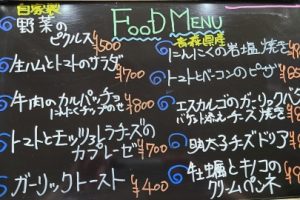 FOOD MENU
自家製
野菜の
ピクルス ¥500
生ハムとトマトのサラダ
¥700
牛肉のカルパッチョ
にんにくチップのせ ¥800
トマトとモッツァレラチーズの
カプレーゼ ¥700
ガーリックトースト ¥400
青森県産
にんにくの岩塩焼き
トマトとベーコンのピザ
エスカルゴのガーリックバター
バケット添え チーズ焼き
明太子チーズドリア
牡蠣とキノコの
クリームペンネ